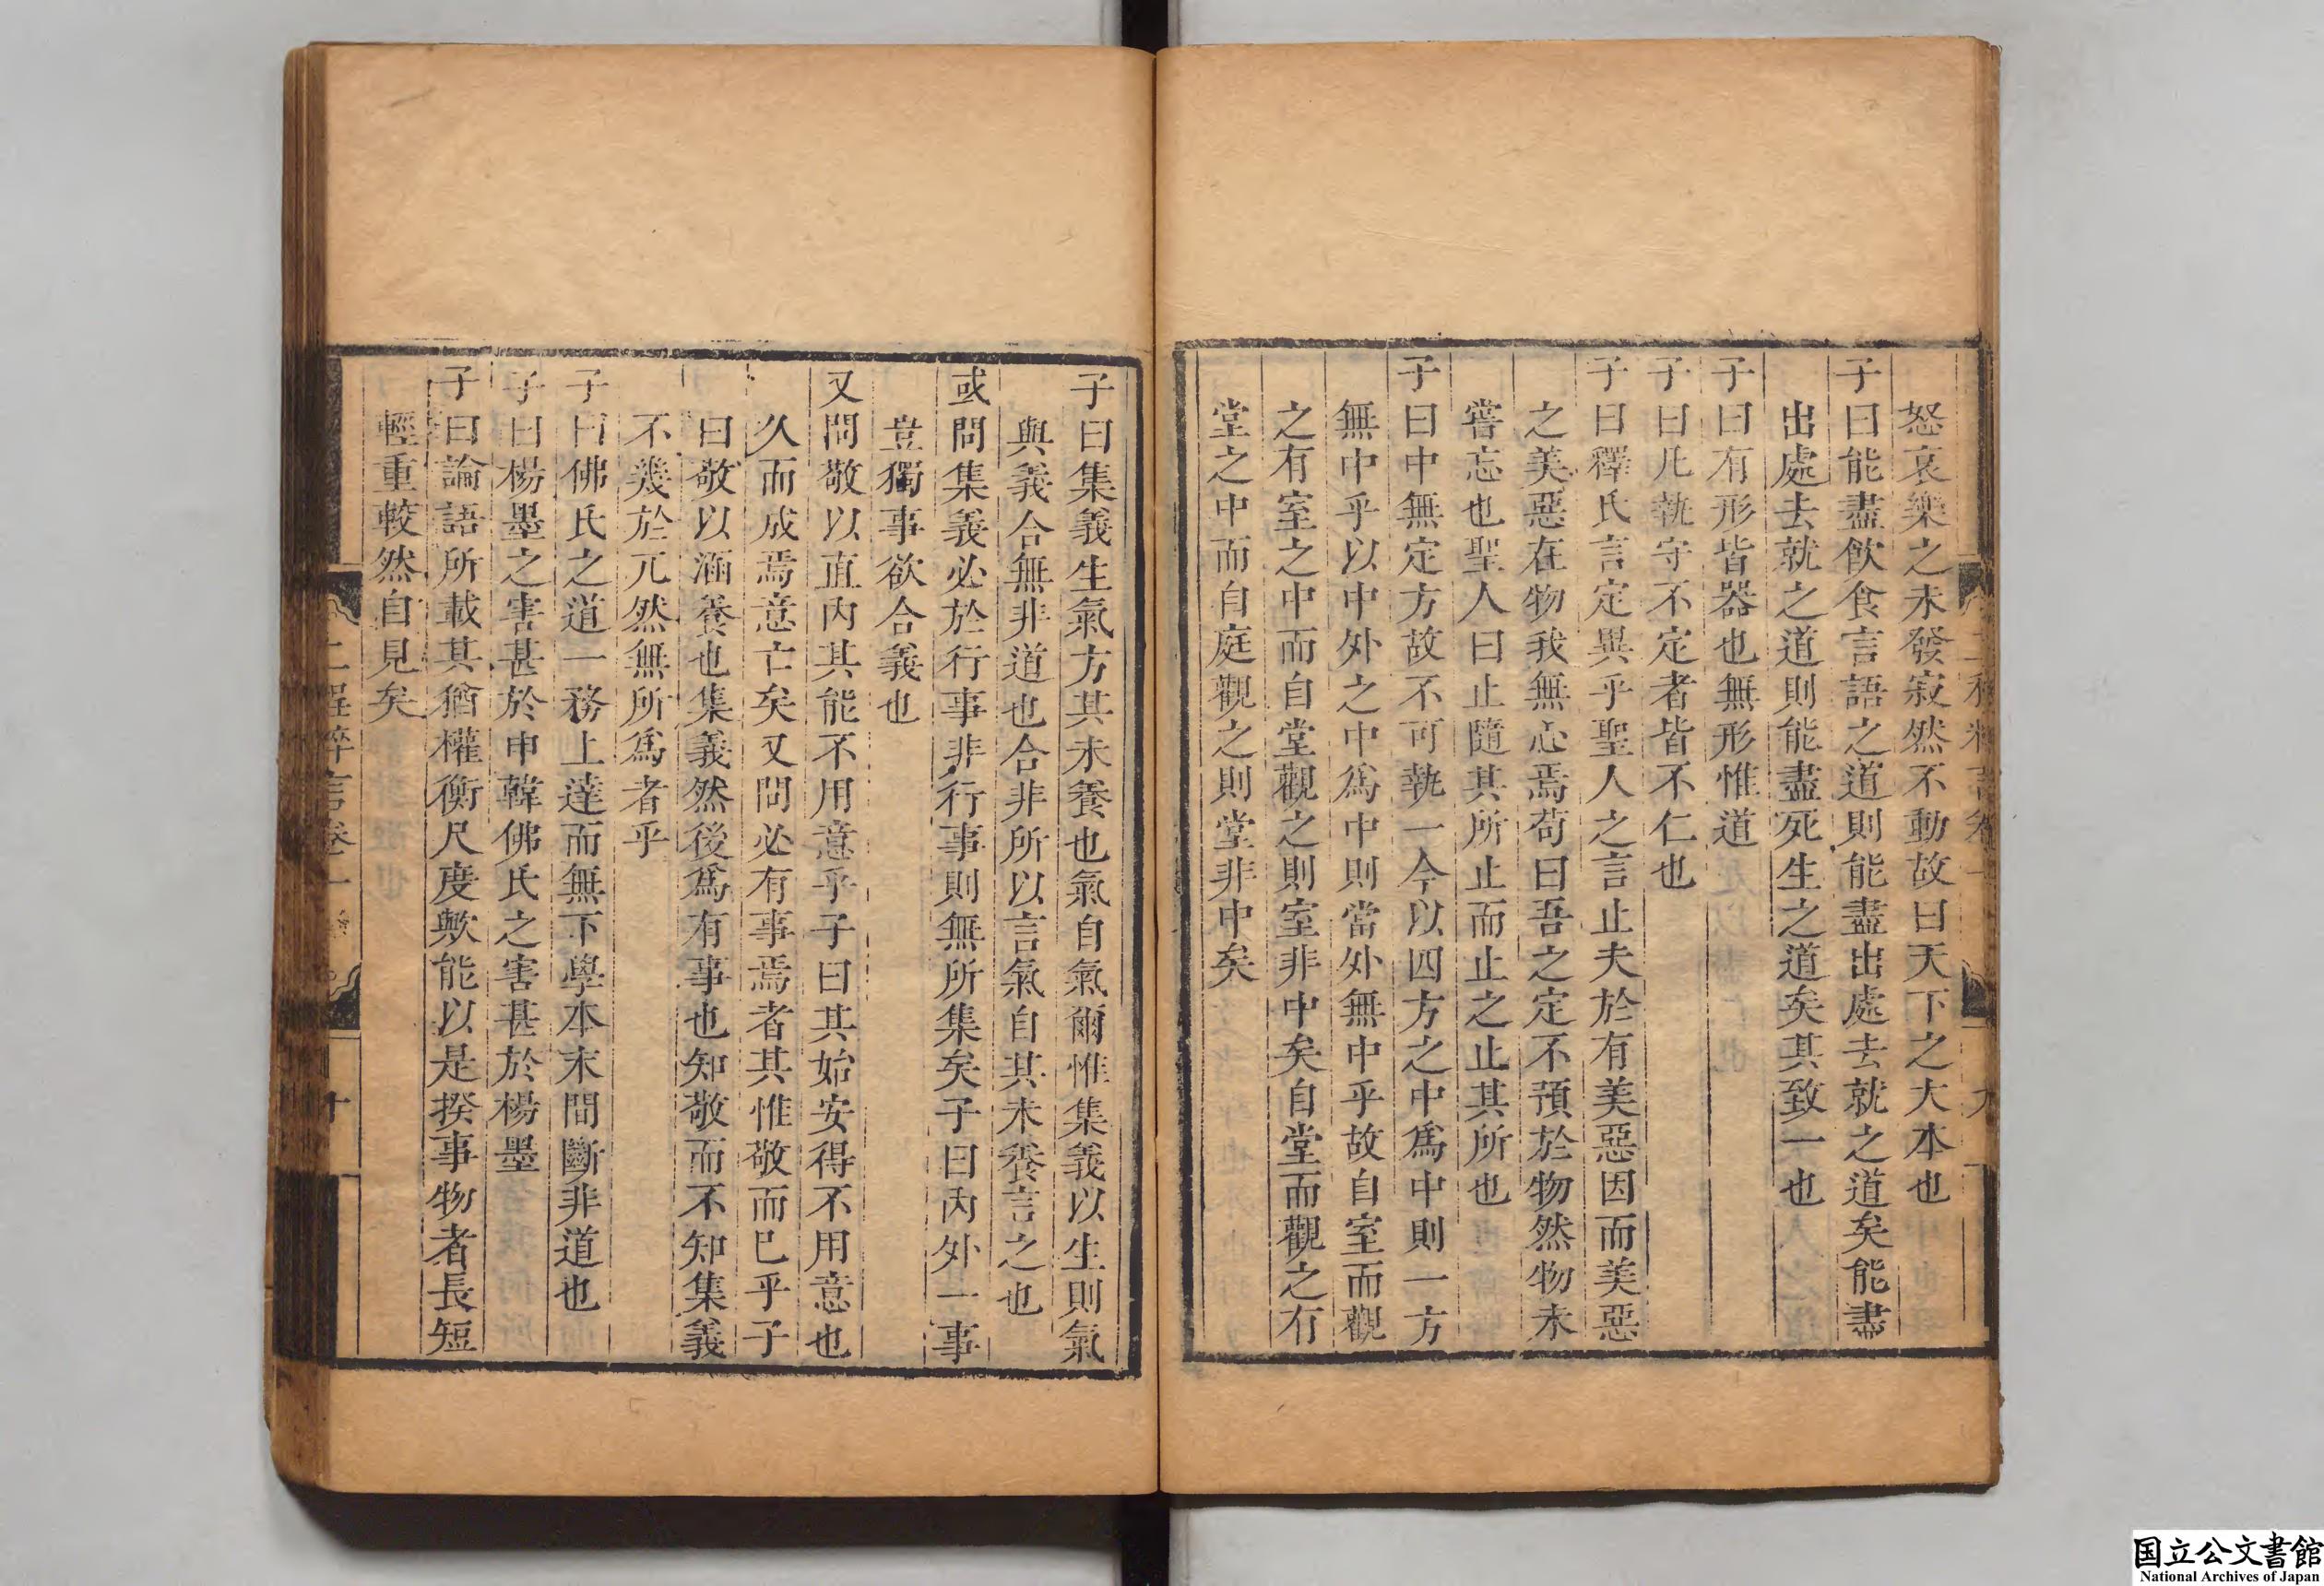 怒哀樂之未發寂然不動故曰天下之大本也
子曰能盡飲食言語之道則能盡出處去就之道矣能盡
出處去就之道則能盡死生之道矣其致一也
子曰有形皆器也無形惟道
子曰凡執守不定者皆不仁也
子曰釋氏言定異乎聖人之言止夫於有美惡因而美惡
之美惡在物我無心焉苟曰吾之定不預於物然物未
嘗忘也聖人曰止隨其所止而止之止其所也
子曰中無定方故不可執一今以四方之中爲中則一方
無中乎以中外之中爲中則當外無中乎故自室而觀
之有室之中而自堂觀之則室非中矣自堂而觀之有
堂之中而自庭觀之則堂非中矣
子曰集義生氣方其未養也氣自氣爾惟集義以生則氣
與義合無非道也合非所以言氣自其未養言之也
或問集義必於行事非行事則無所集矣子曰內外一事
豈獨事欲合義也
又問敬以直內其能不用意乎子曰其始安得不用意也
久而成焉意亡矣又問必有事焉者其惟敬而已乎子
曰敬以涵養也集義然後爲有事也知敬而不知集義
不幾於兀然無所爲者乎
子曰佛氏之道一務上達而無下學本末間斷非道也
子曰楊墨之害甚於申韓佛氏之害甚於楊墨
子曰論語所載其猶權衡尺度歟能以是揆事物者長短
輕重較然自見矣
二程粹言卷一
十
国立公文書館
National Archives of Japan